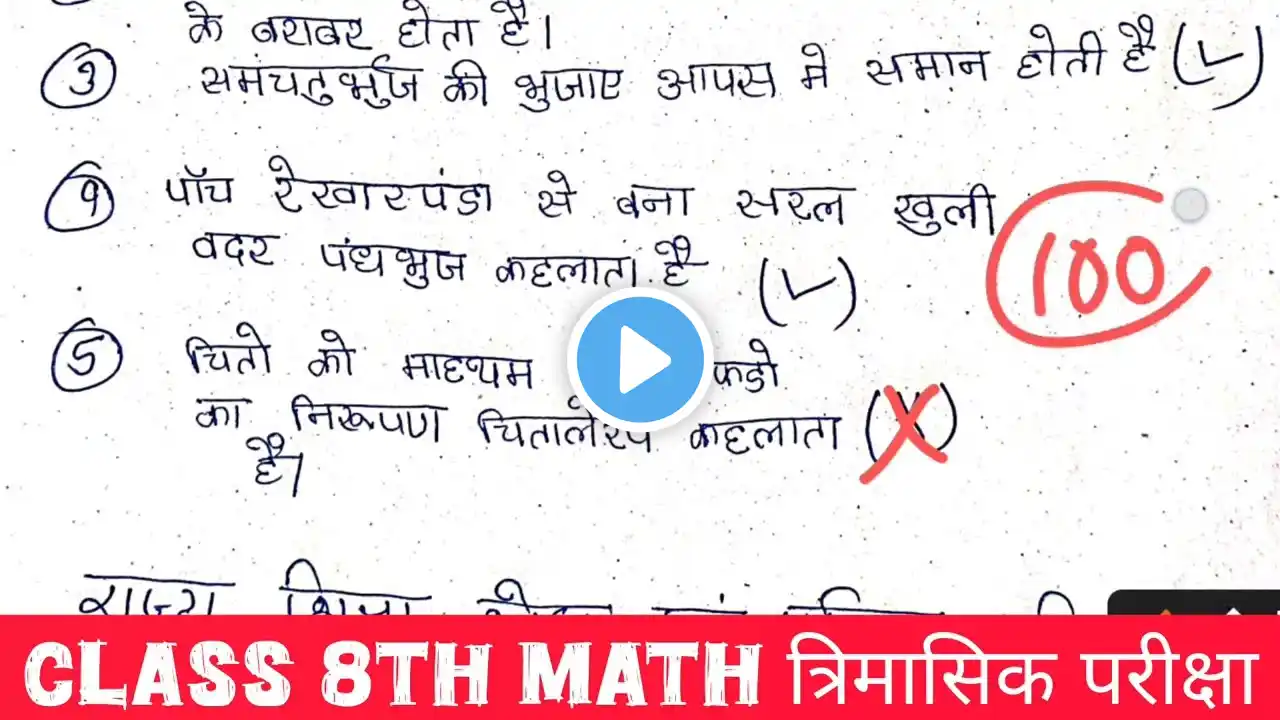 के बराबर होता है।
③ समचतुर्भुज की भुजाए आपस मे समान होती है (✓)
④ पाँच रेखारपंडा से बना सरल खुली
वदर पंधभुज कहलाता है (✓)
100
⑤ चितो को माध्यम कडो
का निरूपण चितालेख कहलाता (X)
है।
राज्य शिक्षा
CLASS 8TH MATH त्रिमासिक परीक्षा